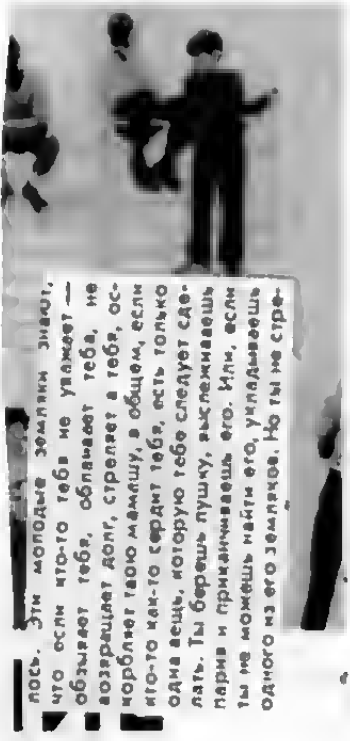 лось. Эти молодые земляки знают,
что если кто-то тебя не уважает —
обзывает тебя, облапает тебя, не
возвращает долг, стреляет в тебя, ос-
корбляет твою мамашу, в общем, если
кто-то как-то сердит тебя, есть только
одна вещь, которую тебе следует сде-
лать. Ты берешь пушку, выслеживаешь
парня и приканчиваешь его. Или, если
ты не можешь найти его, укладываешь
одного из его земляков. Но ты не стре-